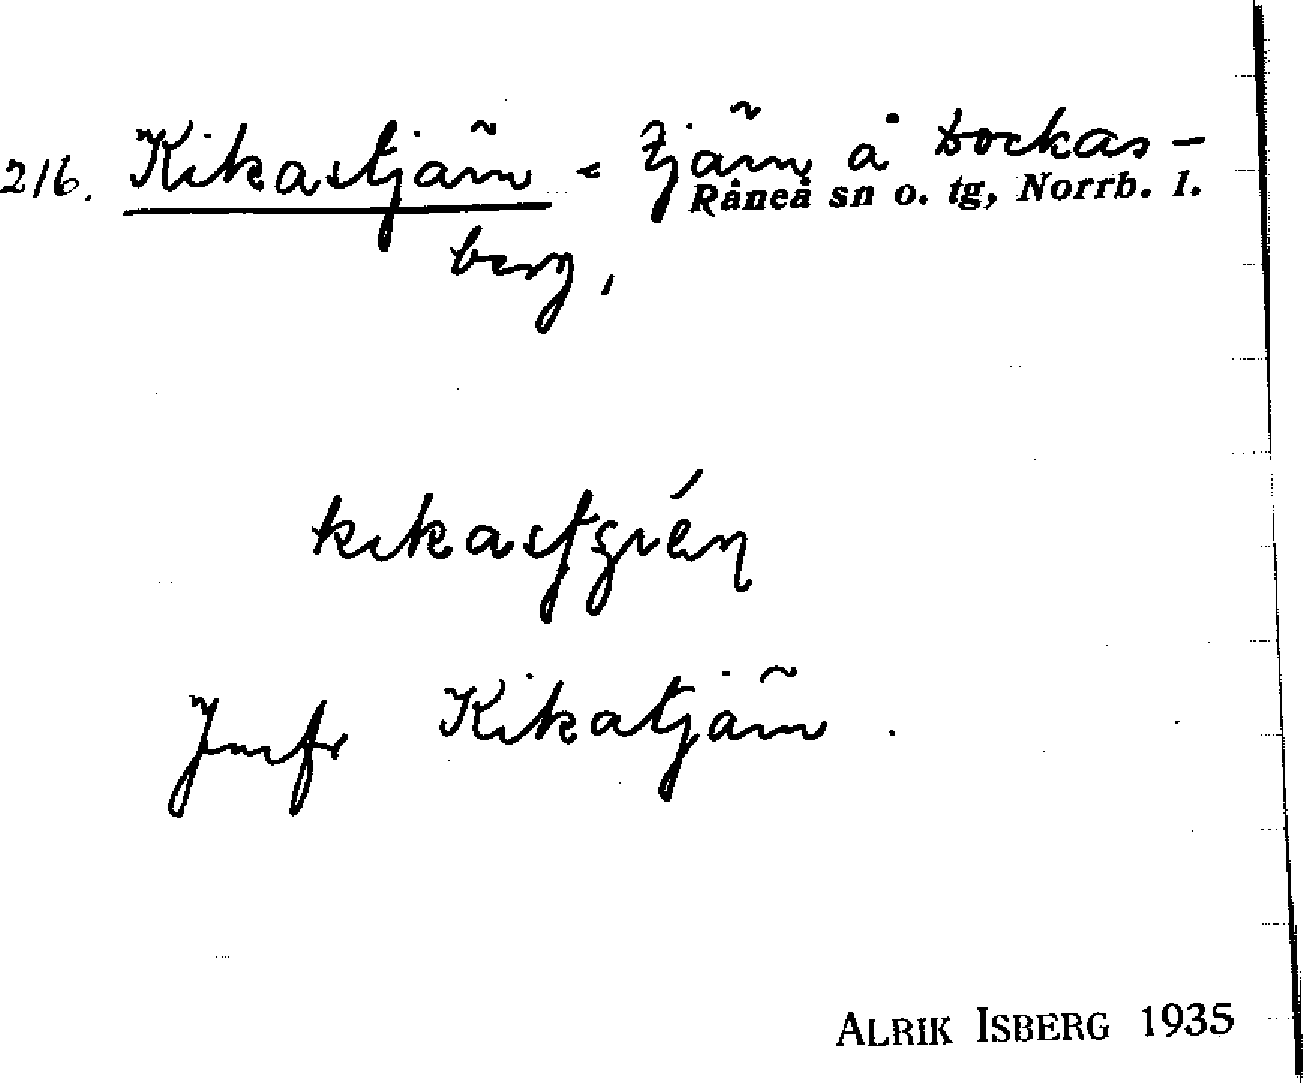 216. Kikastjärn = Tjärn å Dockas-
Råneå sn o. tg, Norrb. l.
berg,
Jmfr Kikatjärn .
ALRIK ISBERG 1935